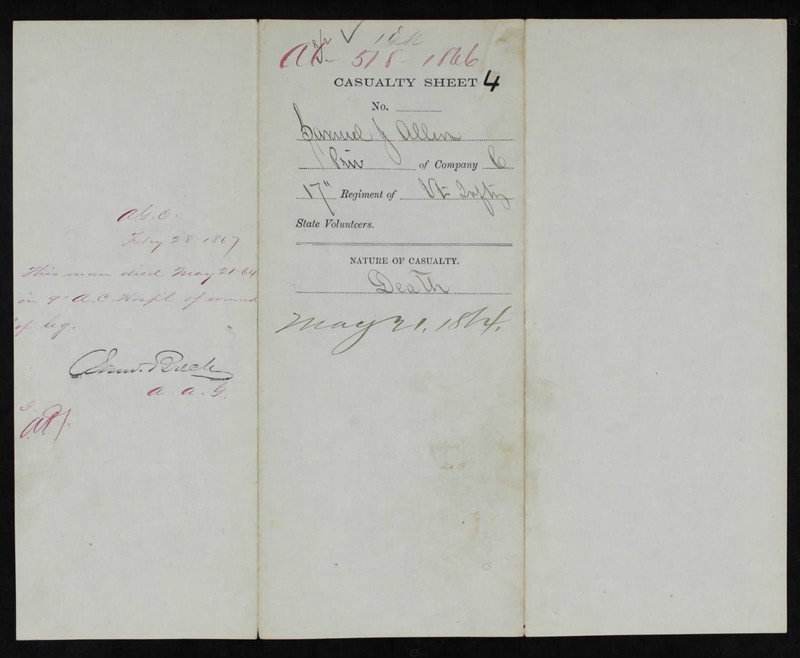 A.G.O.
Feby 28-1867
This man died May 21-64
in 9" A.C. Hospl of wound
of leg.
A. A. G.
518-1866
CASUALTY SHEET 4
No.
Samuel J Allen
Priv of Company C
17" Regiment of Vt Infty
State Volunteers.
NATURE OF CASUALTY.
Death
May 21, 1864.